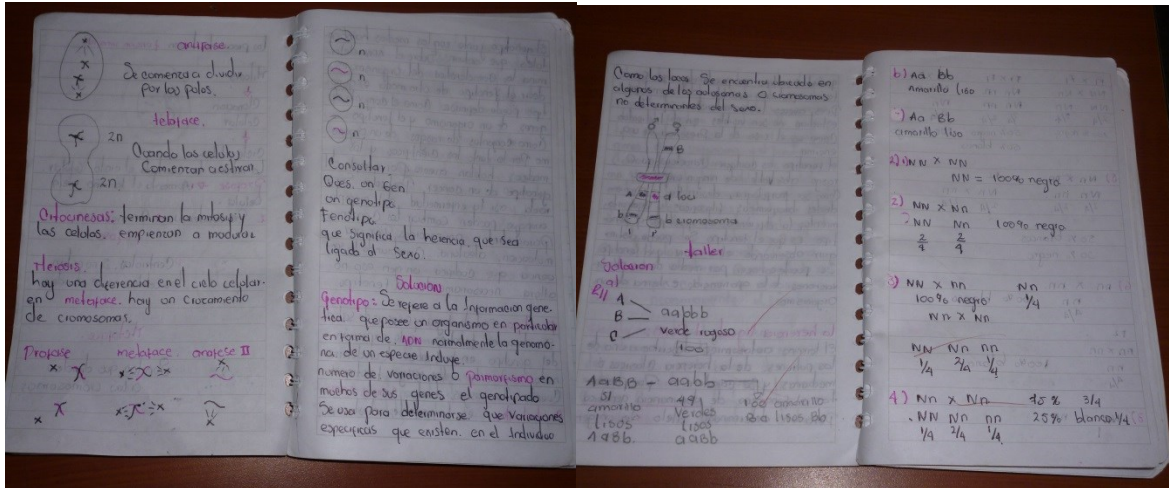 anafase.
Se comienza a dividir
por los polos.
teloface.
2n
Cuando las celulas
Comienzan a
2n
Citocinesas: terminan la mitosis y
las celulas. empienzan a
Meiosis.
hay una diferencia en el ciclo celular.
en metaface. hay un
de cromosomas.
Profase metaface anafase II
n
n
n
n
Consultar.
Ques. un Gen
un genotipo.
Fenotipo
que significa la herencia que sea
ligado al Sexo.
Solucion
genotipo: Se refiere a la Informacion gene-
tica que posee un organismo en particular
en forma de. ADN normalmente la genomo-
na. de un especie Incluye
numero de variaciones o en
muchos de sus genes el genotipado
Se usa para determinarse que variaciones
especificas que existen. en el Individuo
Como los locos Se encuentra ubicado en
algunos de los autosomas O cromosomas
no determinantes del sexo.
B
A a loci
b b cromosoma
taller
Solucion
a)
R//
A
B aabbb
C verde rogoso
100
AaBB - aabb
51 491 amarillo
amarillo Verdes lisos
lisos lisos
AaBb. aaBb
b) Aa Bb
Amarillo liso
Aa Bb
amarillo liso
NN x NN
NN = 100% negro
2) NN x Nn
NN Nn 100% negro
2/4 2/4
3) NN x nn Nn
100% negro 1/4
Nn x Nn
NN Nn nn
1/4 2/4 1/4
4) Nn x Nn 75% 3/4
NN Nn nn 25% blanco 1/4
1/4 2/4 1/4.